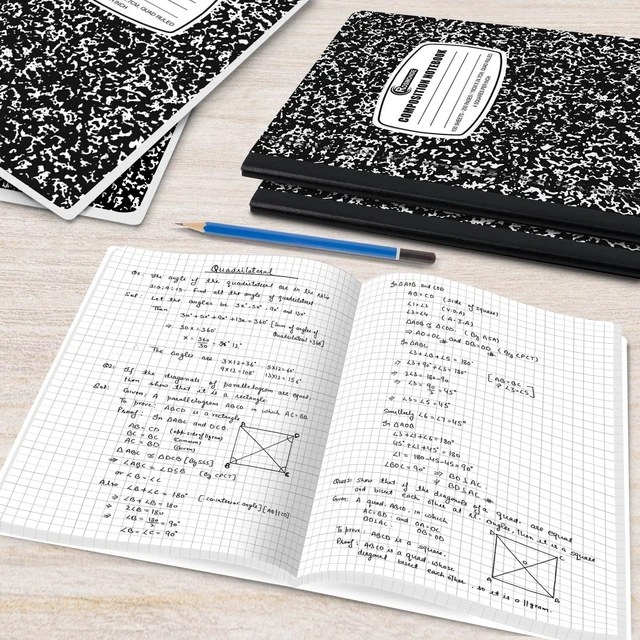 7CM, QUAD RULED
INCH
COMPOSITION NOTEBOOK
Quadrilateral
The angle of the quadrilateral are in the ratio
3:5:9:13. Find all the angle of quadrilateral
Sol: Let the angles be 3x°, 5x°, 9x° and 13x°
Then
3x° + 5x° + 9x° + 13x = 360° [Sum of angles of Quadrilateral = 360°]
⇒ 30x = 360°
x = 360/30 = 36° 12°
The Angles are 3×12 = 36° 5×12 = 60°
9×12 = 108° 13×12 = 156°
If the diagonals of parallelogram are equal,
then show that it is a rectangle.
Sol: Given: A parallelogram ABCD in which AC = BD
To prove: ABCD is a rectangle
Proof: In ΔABC and DCB
AB = CD (opp. side of ||gram)
BC = BC (Common)
AC = BD (Given)
ΔABC ≅ ΔDCB [By SSS]
⇒ ∠ABC = ∠DCB (By CPCT)
or ∠B = ∠C
Also ∠B + ∠C = 180° [cointerior angle] (AB||CD)
⇒ ∠B + ∠B = 180°
⇒ 2∠B = 180°
⇒ ∠B = 180/2 = 90°
∠B = ∠C = 90°
A
D
B
C
In ΔAOB and COD
AB = CD (side of square)
∠1 = ∠2 (V.O.A)
∠3 = ∠4 (A.I.A)
ΔAOB ≅ ΔCOD (By ASA)
⇒ AO = OC and OB = OD (By CPCT)
In ΔABC
∠3 + ∠B + ∠5 = 180°
⇒ ∠3 + 90° + ∠3 = 180° [AB = BC ⇒ ∠3 = ∠5]
⇒ 2∠3 = 180 - 90
⇒ ∠3 = 90/2 = 45°
⇒ ∠3 = ∠5 = 45°
Similarly ∠6 = ∠7 = 45°
In ΔAOB
∠3 + ∠1 + ∠6 = 180°
45° + ∠1 + 45° = 180°
∠1 = 180 - 45 - 45 = 90°
∠BOC = 90° ⇒ BO ⊥ AC
⇒ BD ⊥ AC
Ques: Show that if the diagonals of a quad. are equal
and bisect each other at rt. angles, then it is a square
Given: A quad. ABCD, in which
AC = BD and OA = OC
BD ⊥ AC OB = OD
To prove: ABCD is a square.
Proof: ABCD is a quad. whose
diagonal bisect each other, so it is a ||gram.
D
C
O
A
B